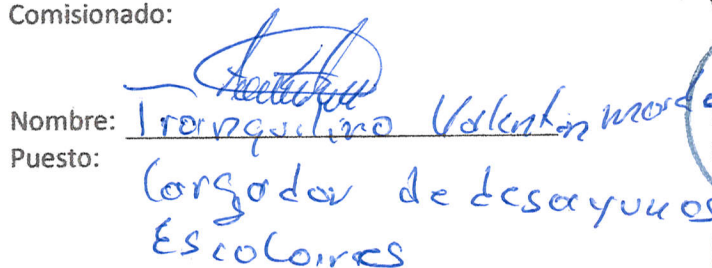 Comisionado:
Nombre: Tranquilino Valentin
Puesto:
Cargador de desayunos
Escolares